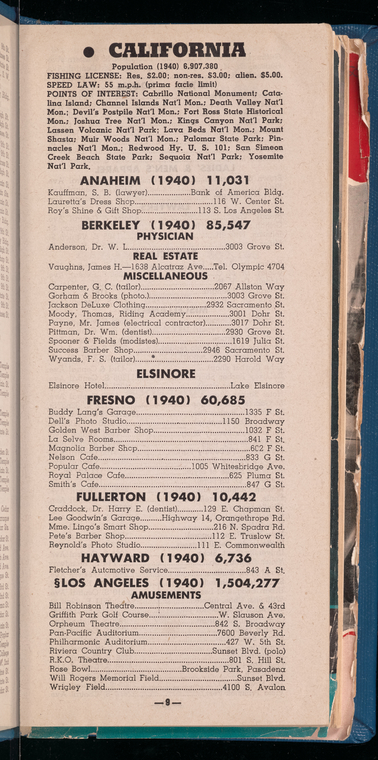 • CALIFORNIA
Population (1940) 6,907,380
FISHING LICENSE: Res. $2.00; non-res. $3.00; alien, $5.00.
SPEED LAW: 55 m.p.h. (prima facie limit)
POINTS OF INTEREST: Cabrillo National Monument; Cata-
lina Island; Channel Islands Nat'l Mon.; Death Valley Nat'l
Mon.; Devil's Postpile Nat'l Mon.; Fort Ross State Historical
Mon.; Joshua Tree Nat'l Mon.; Kings Canyon Nat'l Park;
Lassen Volcanic Nat'l Park; Lava Beds Nat'l Mon.; Mount
Shasta; Muir Woods Nat'l Mon.; Palomar State Park; Pin-
nacles Nat'l Mon.; Redwood Hy. U. S. 101; San Simeon
Creek Beach State Park; Sequoia Nat'l Park; Yosemite
Nat'l Park.
ANAHEIM (1940) 11,031
Kauffman, S. B. (lawyer)..................Bank of America Bldg.
Lauretta's Dress Shop..........................116 W. Center St.
Roy's Shine & Gift Shop..................113 S. Los Angeles St.
BERKELEY (1940) 85,547
PHYSICIAN
Anderson, Dr. W. L...............................3003 Grove St.
REAL ESTATE
Vaughns, James H.—1638 Alcatraz Ave.....Tel. Olympic 4704
MISCELLANEOUS
Carpenter, G. C. (tailor).......................2067 Allston Way
Gorham & Brooks (photo.)........................3003 Grove St.
Jackson DeLuxe Clothing....................2932 Sacramento St.
Moody, Thomas, Riding Academy...................3001 Dohr St.
Payne, Mr. James (electrical contractor)..........3017 Dohr St.
Pittman, Dr. Wm. (dentist).......................2930 Grove St.
Spooner & Fields (modistes).......................1619 Julia St.
Success Barber Shop.......................2946 Sacramento St.
Wyands, F. S. (tailor)..........................2290 Harold Way
ELSINORE
Elsinore Hotel....................................Lake Elsinore
FRESNO (1940) 60,685
Buddy Lang's Garage...............................1335 F St.
Dell's Photo Studio.............................1150 Broadway
Golden West Barber Shop...........................1032 F St.
La Selve Rooms.....................................841 F St.
Magnolia Barber Shop...............................602 F St.
Nelson Cafe........................................833 G St.
Popular Cafe..........................1005 Whitesbridge Ave.
Royal Palace Cafe...............................625 Pluma St.
Smith's Cafe.......................................847 G St.
FULLERTON (1940) 10,442
Craddock, Dr. Harry E. (dentist).........129 E. Chapman St.
Lee Goodwin's Garage..........Highway 14, Orangethrope Rd.
Mme. Lingo's Smart Shop....................216 N. Spadra Rd.
Pete's Barber Shop.........................112 E. Truslow St.
Reynold's Photo Studio................111 E. Commonwealth
HAYWARD (1940) 6,736
Fletcher's Automotive Service......................843 A St.
§LOS ANGELES (1940) 1,504,277
AMUSEMENTS
Bill Robinson Theatre....................Central Ave. & 43rd
Griffith Park Golf Course......................W. Slauson Ave.
Orpheum Theatre...............................842 S. Broadway
Pan-Pacific Auditorium.......................7600 Beverly Rd.
Philharmonic Auditorium.......................427 W. 5th St.
Riviera Country Club......................Sunset Blvd. (polo)
R.K.O. Theatre.................................801 S. Hill St.
Rose Bowl..........................Brookside Park, Pasadena
Will Rogers Memorial Field......................Sunset Blvd.
Wrigley Field................................4100 S. Avalon
—8—